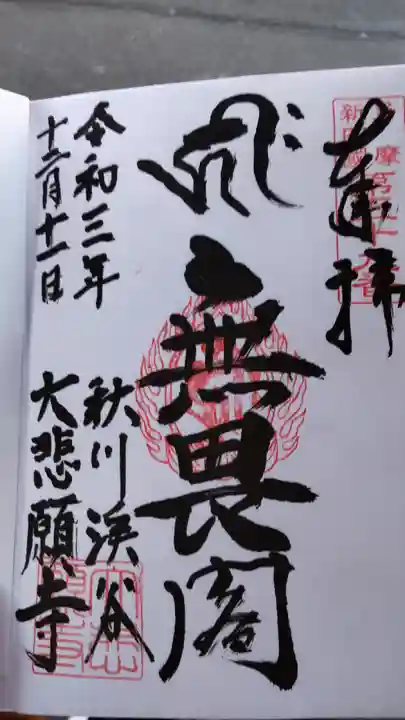 奉拝
無畏閣
令和三年
十二月十一日
秋川渓谷
大悲願寺